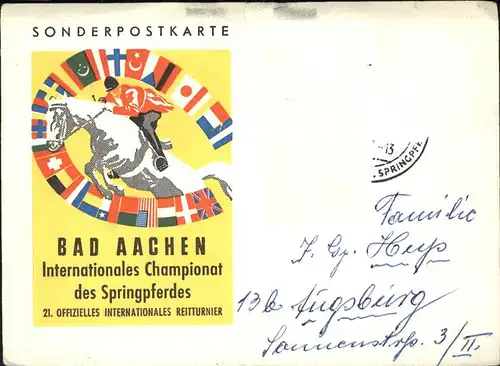 SONDERPOSTKARTE
BAD AACHEN
Internationales Championat
des Springpferdes
21. OFFIZIELLES INTERNATIONALES REITTURNIER
-13
. SPRINGPFE
Familie
J. Gg. Heys
13b Augsburg
Sonnenstrſs. 3/II.